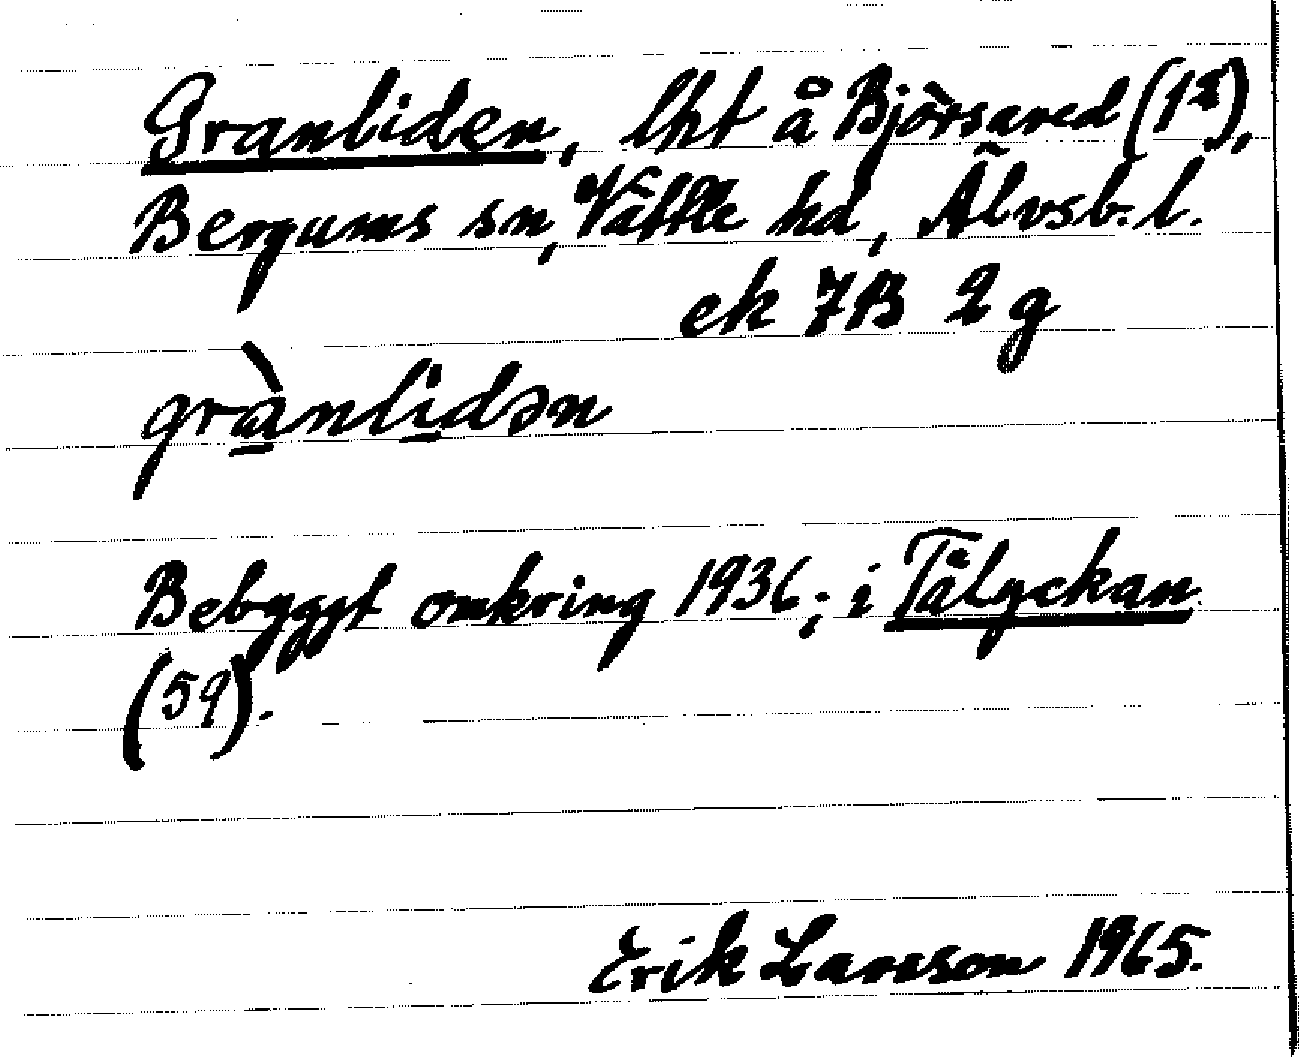 Granliden, lht å Björsared (1²),
Bergums sn, Vättle hd, Älvsb. l.
ek 7B 2g
grànlidən
Bebyggt omkring 1936; i Tålyckan
(59).
Erik Larsson 1965.